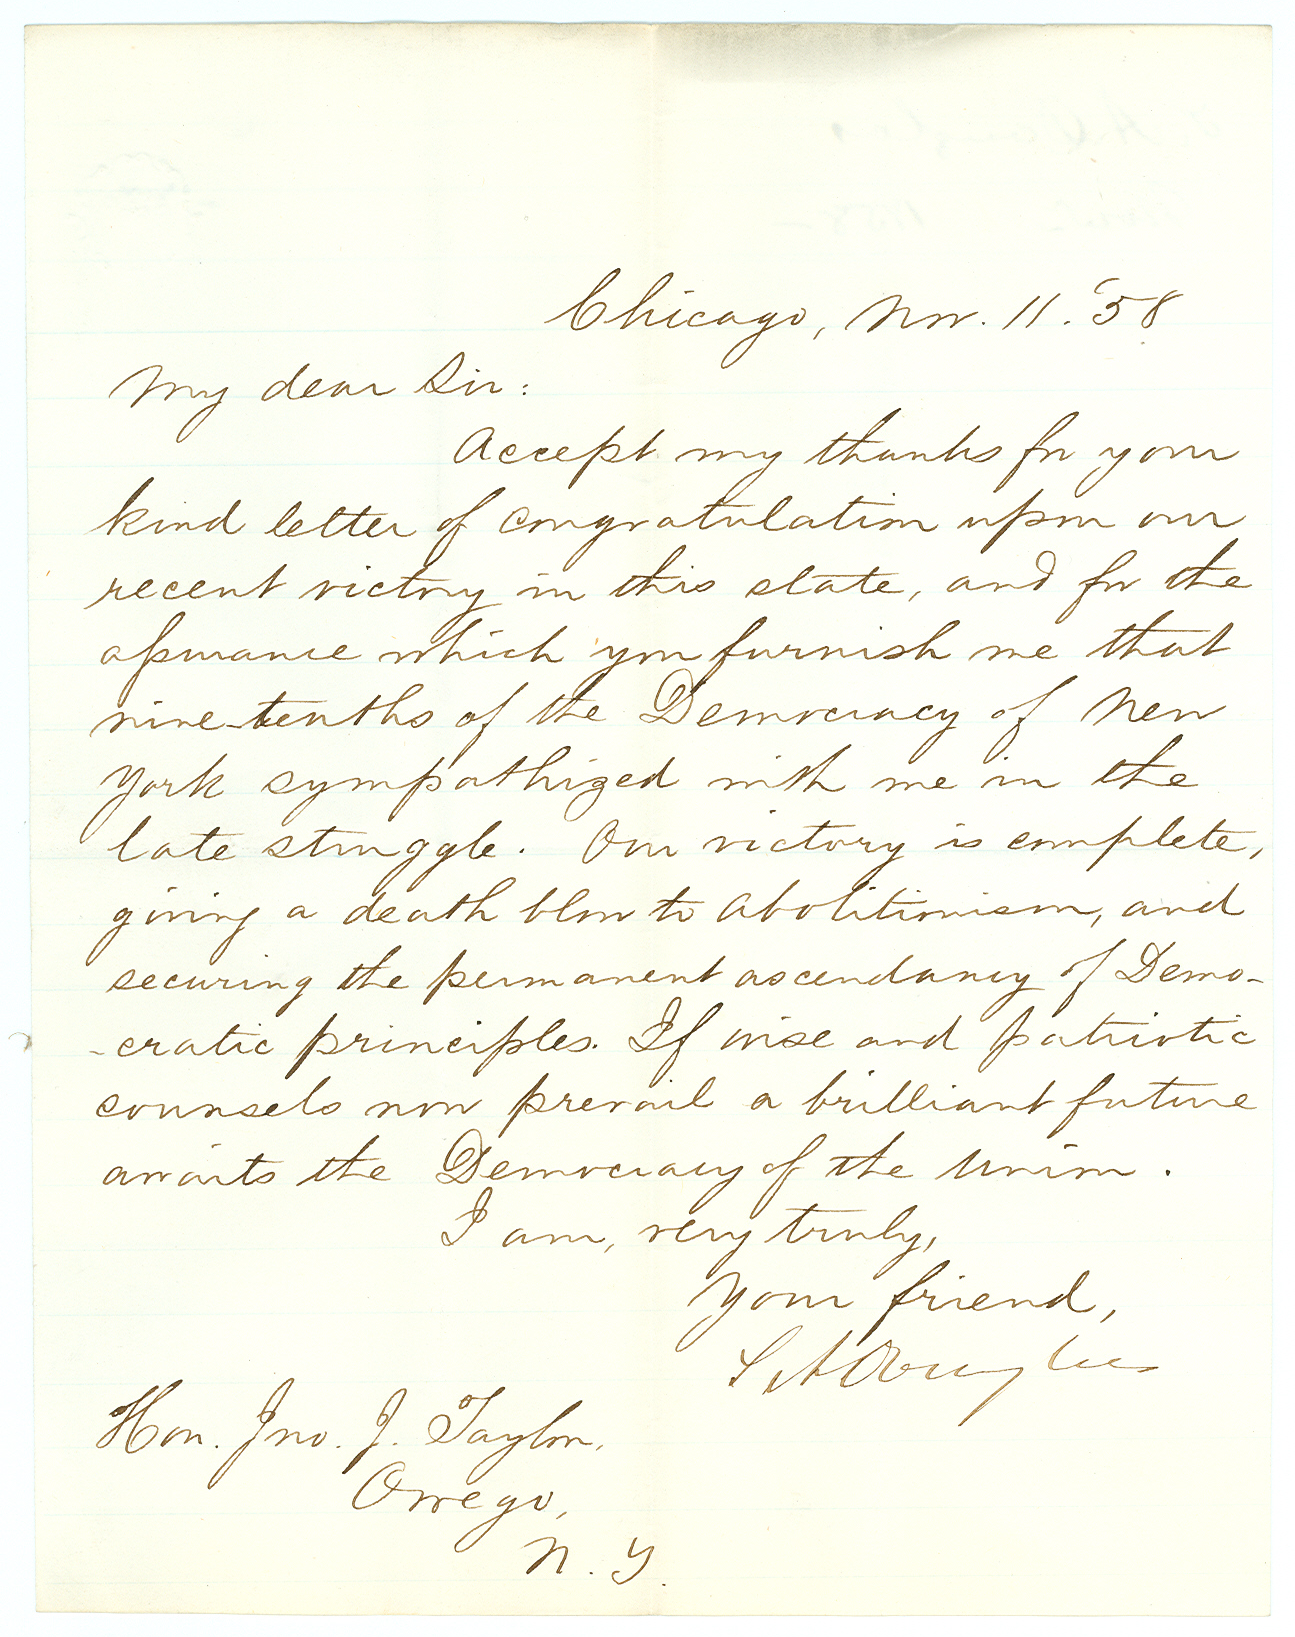 Chicago, Nov. 11. '58
My dear Sir:
Accept my thanks for your
kind letter of congratulation upon our
recent victory in this state, and for the
assurance which you furnish me that
nine-tenths of the Democracy of New
York sympathized with me in the
late struggle. Our victory is complete,
giving a death blow to Abolitionism, and
securing the permanent ascendancy of Demo-
-cratic principles. If wise and patriotic
counsels now prevail a brilliant future
awaits the Democracy of the Union.
I am, very truly,
Your friend,
S A Douglas
Hon. Jno. J. Taylor,
Owego,
N. Y.